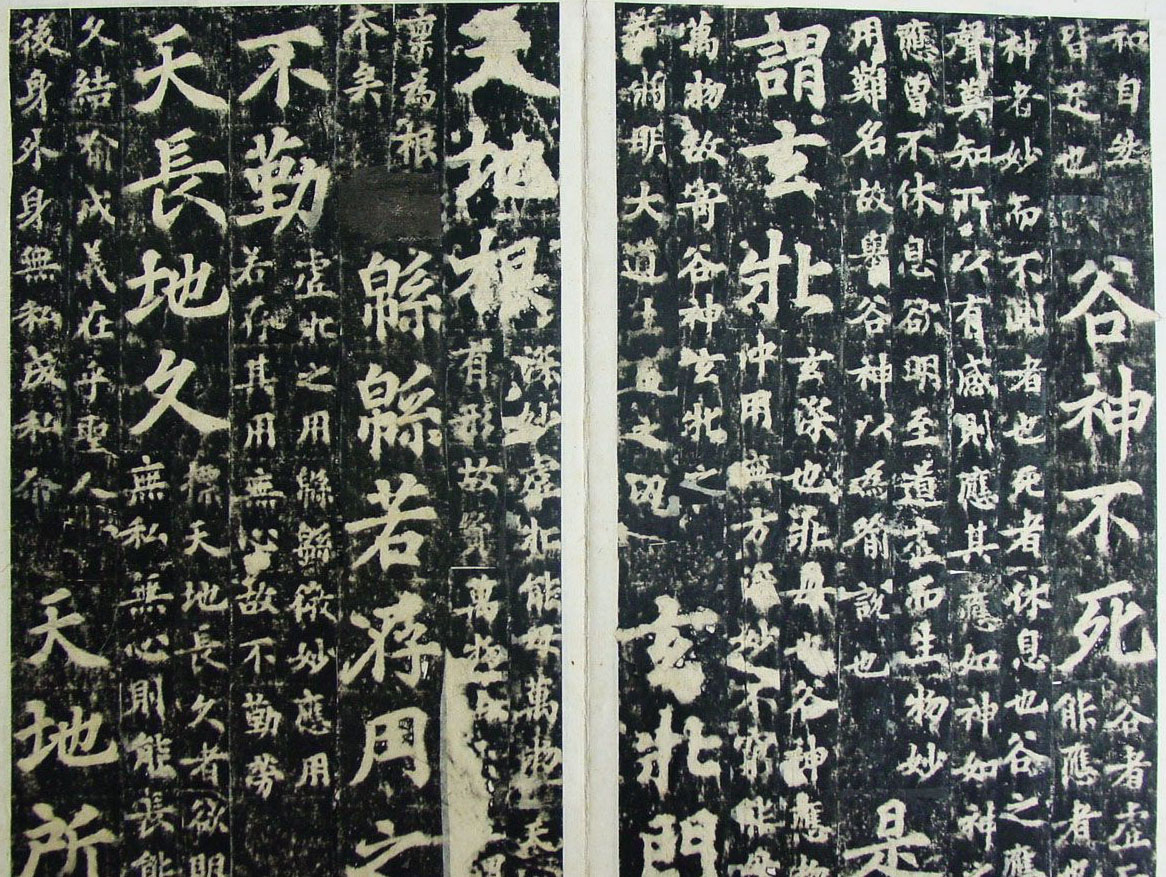 和自
皆 也
谷神不死
谷者虛
能應者
神者妙而不測者也死者休息也谷之應
聲莫知所以有感則應其應如神如神
應曾不休息欲明至道虛而生物妙
用難名故舉谷神以為喻說也
是
謂玄牝
玄深也牝母也谷神應物
沖用無方深妙不窮能母
萬物故寄谷神玄牝之
號將明大道生畜之功
玄牝門
天地根
深妙虛牝能母萬物天
有形故資萬物
稟為根
本矣
緜緜若存用之
不勤
虛牝之用緜緜微妙應用
若存其用無心故不勤勞
天長地久
標天地長久者欲明
無私無心則能長能
久結喻成義在乎聖人
後身外身無私成私爾
天地所